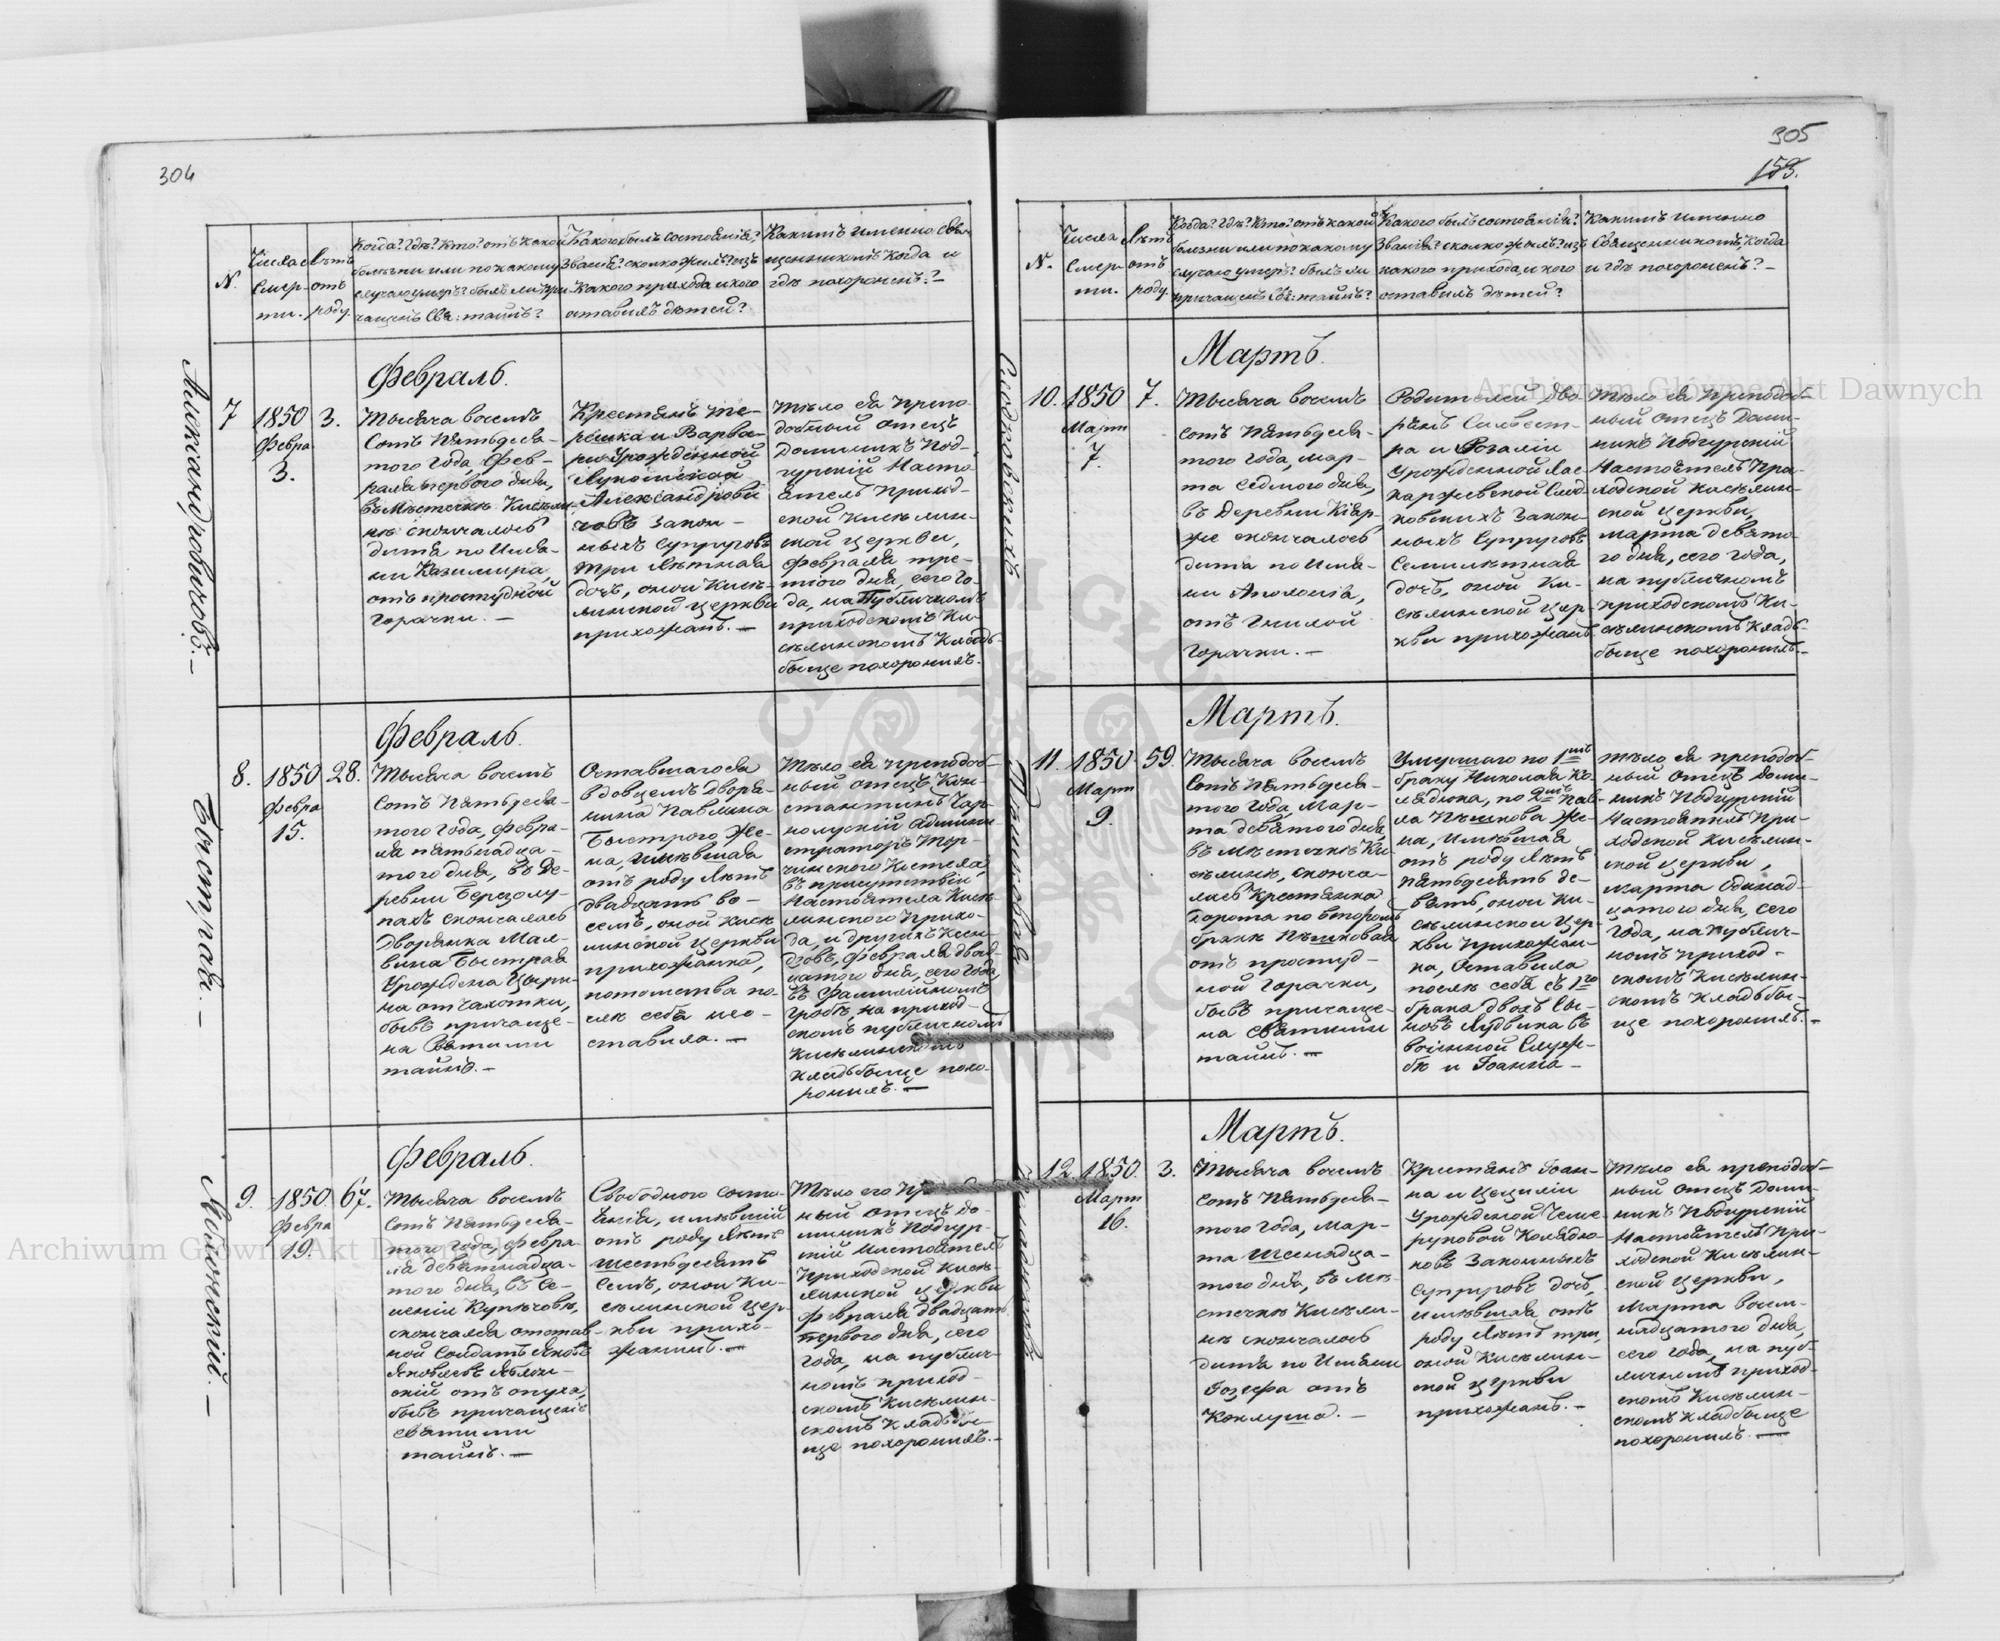 304
N.
Числа Смер- ти.
Лѣтъ отъ роду.
Когда? Гдѣ? Кто? отъ какой
болѣзни или по какому
случаю умеръ? былъ ли при-
чащенъ Свя: тайнъ?
Какого былъ состоянія?
Званія? сколко жилъ? изъ
какого прихода, и кого
оставилъ дѣтей?
Какимъ именно Свя-
щенникомъ, когда и
гдѣ похороненъ?-
Февраль.
7
1850
Февра
3.
3.
Тысяча восемъ
Сотъ Пятьдеся-
того Года, Фев-
раля первого дня,
въ Мѣстечкѣ Кисѣли-
нѣ скончалось
дитя по Имя-
ни Казимира,
отъ простудной
горячки. —
Крестянъ Те-
решка и Варва-
ры Урожденной
Александрови-
човъ закон-
ныхъ Супруговъ
три лѣтная
дочь, оной Кисѣ-
линской церкви
прихожанъ. —
Тѣло ея Препо-
добный отецъ
Доминикъ Под-
гурскій Насто-
ятель Приход-
ской Кисѣлин-
ской церкви,
Февраля тре-
тіого дня, сего го-
да, на Публичномъ
приходскомъ Ки-
сѣлинскомъ Кладъ-
быще похоронилъ.
Февраль.
8.
1850
Февра
15.
28.
Тысяча восемъ
Сотъ Пятьдеся-
того года, Февра-
ля пятьнадца-
того дня, въ Де-
ревни Березолу-
пахъ скончалась
Дворянка Мал-
вина Быстрая
на отъ Чахотки,
бывъ причаще-
на Святыми
тайнъ. —
Оставшагося
вдовцемъ дворя-
нина Павлина
Быстрого Же-
на, имѣвшая
отъ роду лѣтъ
двадцать во-
семъ, оной Кисѣ-
линской церкви
прихожанка,
потомства по-
слѣ себѣ нео-
ставила. —
Тѣло ея преподоб-
ный отецъ Кон-
стантинъ Чар-
Админи-
страторъ Тор-
чинского Костела
въ присутствіи
Настоятеля Кисѣ-
линского Прихо-
да, и другихъ Ксен-
дзовъ, Февраля двад-
цатого дня, сего года,
въ Фамилійномъ
гробѣ, на приход-
скомъ публичномъ
Кисѣлинскомъ
Кладьбыще похо-
ронилъ. —
Февраль.
9.
1850.
Февра
19.
67.
Тысяча восемъ
Сотъ Пятьдеся-
того Года, Февра-
ля девятнадца-
того дня, въ Се-
леніи Купѣчовѣ,
скончался отстав-
ной Солдатъ Яковъ
Яковлевъ Яблон-
скій отъ опуха,
бывъ причащенъ
Святыми
тайнъ. —
Свободного состо-
янія, имѣвшій
отъ роду лѣтъ
шестьдесятъ
Семъ, оной Ки-
сѣлинской цер-
кви прихо-
жанинъ. —
Тѣло его
ный отецъ До-
миникъ Подгур-
скій Настоятель
Приходской Кисѣ-
линской церкви
Февраля двадцать
первого дня, сего
года, на публич-
номъ приход-
скомъ Кисѣлин-
скомъ Кладьбы-
ще похоронилъ. —
Александровичовъ. —
Быстрая. —
305
153.
N.
Числа Смер- ти.
Лѣтъ отъ роду.
Когда? Гдѣ? Кто? отъ какой
болѣзни или по какому
случаю умеръ? былъ ли
причащенъ Свя: тайнъ?
Какого былъ состоянія?
Званія? сколко жилъ? изъ
какого прихода, и кого
оставилъ дѣтей?
Какимъ именно
Священникомъ, когда
и гдѣ похороненъ? —
Мартъ.
10.
1850
Март
7.
7.
Тысяча восемъ
сотъ Пятьдеся-
того Года, мар-
та седмого дня,
въ Деревни Кіяр-
же скончалось
дитя по Имя-
ни Аполонія,
отъ Гнилой
Горячки. —
Родителей Дво-
рянъ Силвест-
ра и Розаліи
Урожденной
Слод-
ковскихъ Закон-
ныхъ Супруговъ
Семилѣтная
дочь, оной Ки-
сѣлинской цер-
кви прихожанъ
Тѣло ея Преподоб-
ный отецъ Доми-
никъ Подгурскій
Настоятель При-
ходской Кисѣлин-
ской церкви,
марта девято-
го дня, сего года,
на публичномъ
приходскомъ Ки-
сѣлинскомъ Кладь-
быще похоронилъ. —
Мартъ.
11.
1850.
Март
9.
59.
Тысяча восемъ
Сотъ Пятьдеся-
того Года, Мар-
та девятого дня,
въ Мѣстечкѣ Ки-
сѣлинѣ, сконча-
лась Крестянка
Дорота по второмъ
бракѣ Пѣшковая
отъ простуд-
ной Горячки,
бывъ причаще-
на Святыми
тайнъ. —
Умершаго по 1мъ
браку Николая Ко-
лядюка, по 2мъ Пав-
ла Пѣшкова Же-
на, имѣвшая
отъ роду лѣтъ
Пятьдесятъ де-
вять, оной Ки-
сѣлинской Цер-
кви Прихожан-
ка, Оставила
послѣ себѣ съ 1го
брака двохъ Сы-
новъ Лудвика въ
военной Служ-
бѣ и Іоанна —
Тѣло ея преподоб-
ный отецъ Доми-
никъ Подгурскій
Настоятель При-
ходской Кисѣлин-
ской церкви,
марта Одинад-
цатого дня, сего
Года, на Публич-
номъ приход-
скомъ Кисѣлин-
скомъ Кладьбы-
ще похоронилъ. —
Мартъ.
12.
1850.
Март
16.
3.
Тысяча восемъ
Сотъ Пятьдеся-
того Года, Мар-
та Шеснадца-
того дня, въ Мѣ-
стечкѣ Кисѣли-
нѣ скончалось
дитя по Имяни
Іозефа отъ
Коклуша. —
Крестянъ Іоан-
на и Цециліи
Урожденной Чеме-
руковой Колядю-
ковъ Законныхъ
Супруговъ дочь,
имѣвшая отъ
роду лѣтъ три,
оной Кисѣлин-
ской церкви
прихожанъ. —
Тѣло ея преподоб-
ный отецъ Доми-
никъ Подгурскій
Настоятель При-
ходской Кисѣлин-
ской церкви,
Марта восем-
надцатого дня,
сего года, на пуб-
личномъ приход-
скомъ Кисѣлин-
скомъ Кладьбыще
похоронилъ. —
Слодковскихъ
Archiwum Główne Akt Dawnych
Archiwum Główne Akt Dawnych